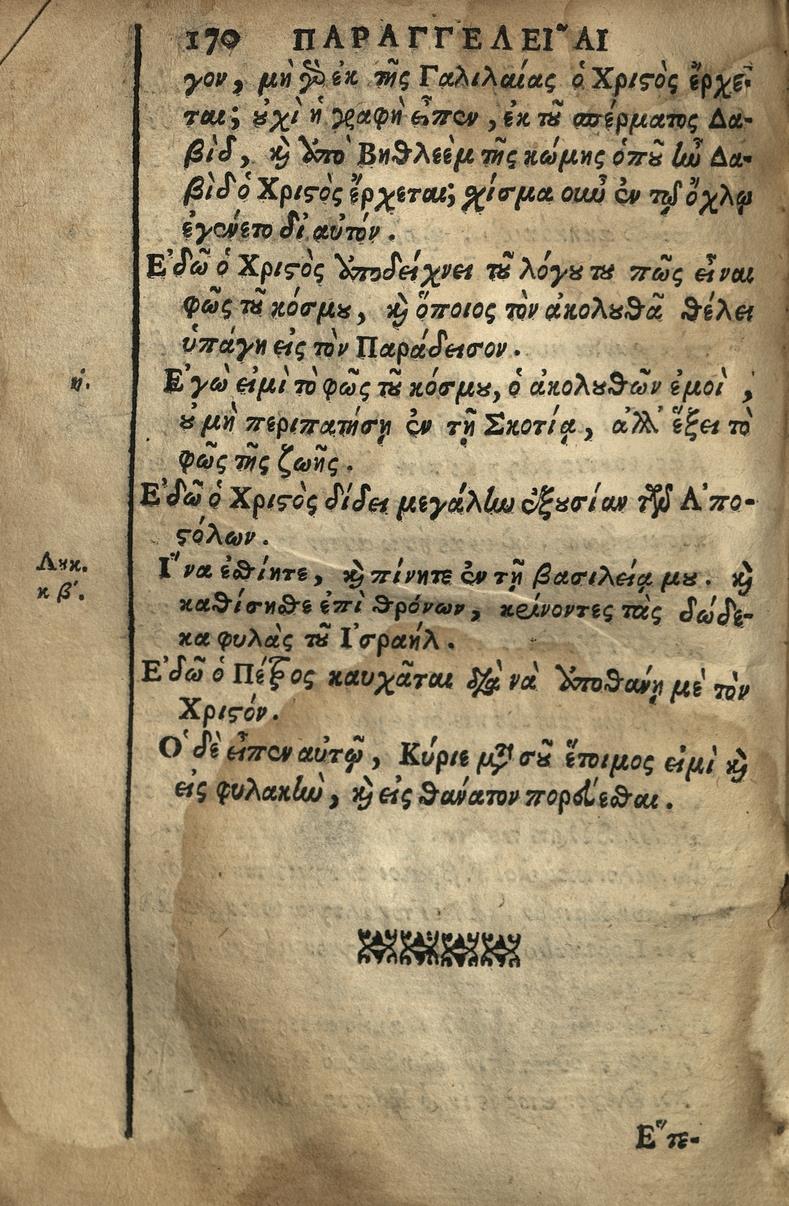 170 ΠΑΡΑΓΓΕΛΕΙ͂ΑΙ
γον, μὴ γὸ ἐκ τῆς Γαλιλαίας ὁ Χριϛὸς ἔρχε-
ται; ȣ̓χὶ ἡ γραφὴ εἶπεν, ἐκ τȣ͂ σπέρματος Δα-
βὶδ, κ̀ ἀπὸ Βηθλεὲμ τῆς κώμης ὁπȣ͂ ἦν Δα-
βὶδ ὁ Χριϛὸς ἔρχεται; χίσμα οὖν ἐν τῷ ὄχλῳ
ἐγένετο δἰ αὐτόν.
Ε᾿δῶ ὁ Χριϛὸς ὑποδείχνει τȣ͂ λόγȣ τȣ πῶς εἶναι
φῶς τȣ͂ κόσμȣ, κ̀ ὅποιος τὸν ἀκολȣθᾶ θέλει
ὑπάγη εἰς τὸν Παράδεισον.
ή. Ε᾿γώ εἰμὶ τὸ φῶς τȣ͂ κόσμȣ, ὁ ἀκολȣθῶν ἐμοὶ,
ȣ̓ μὴ περιπατήσῃ ἐν τῇ Σκοτίᾳ, ἀλλ᾿ ἕξει τὸ
φῶς τῆς ζωῆς.
Ε᾿δῶ ὁ Χριϛὸς δίδει μεγάλην ἐξȣσίαν τῶν Α᾿πο-
ϛόλων.
Λȣκ. Ι῞να ἐθίητε, κ̀ πίνητε ἐν τῇ βασιλείᾳ μȣ. κ̀
κ β΄. καθίσηθε ἐπὶ θρόνων, κρίνοντες τὰς δώδε-
κα φυλὰς τȣ͂ Ι᾿σραήλ.
Ε᾿δῶ ὁ Πέτρος καυχᾶται διὰ νὰ ἀποθανῇ μὲ τὸν
Χριϛόν.
Ο῾ δὲ εἶπεν αὐτῷ, Κύριε μετὰ σȣ͂ ἕτοιμος εἰμὶ κ̀
εἰς φυλακὴν, κ̀ εἰς θάνατον πορεύεθαι.
Ε῎πε-